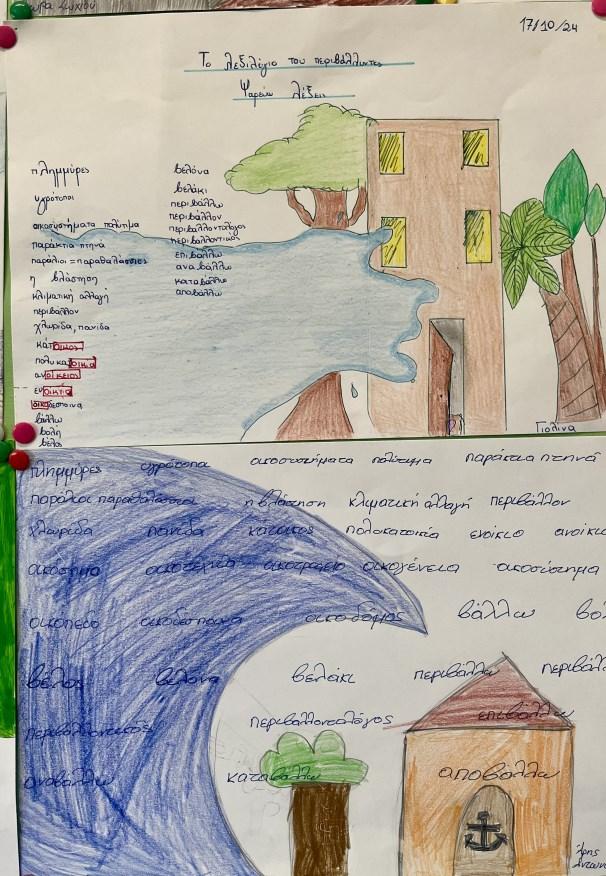 17/10/24
Το λεξιλόγιο του περιβάλλοντος
Ψαρεύω λέξεις
πλημμύρες
υγρότοποι
οικοσυστήματα πολύτιμα
παράκτια πτηνά
παράλιοι = παραθαλάσσιες
η βλάστηση
κλιματική αλλαγή
περιβάλλον
χλωρίδα, πανίδα
κάτοικος
πολυκατοικία
ανοίκειος
ενοίκιο
οικοδέσποινα
βάλλω
βολή
βέλος
βελόνα
βελάκι
περιβάλλω
περιβάλλον
περιβαλλοντολόγος
περιβαλλοντικός
επιβάλλω
αναβάλλω
καταβάλλω
αποβάλλω
Γιολίνα
πλημμύρες υγρότοποι οικοσυστήματα πολύτιμα παράκτια πτηνά
παράλιοι παραθαλάσσιοι η βλάστηση κλιματική αλλαγή περιβάλλον
χλωρίδα πανίδα κάτοικος πολυκατοικία ενοίκιο ανοίκε
οικόσημο οικοτεχνία οικοτροφείο οικογένεια οικοσύστημα
οικόπεδο οικοδέσποινα οικοδόμος βάλλω βο
βέλος βελόνα βελάκι περιβάλλω περιβάλ
περιβαλλοντικός περιβαλλοντολόγος επιβάλλω
αναβάλλω καταβάλλω αποβάλλω
Άρης